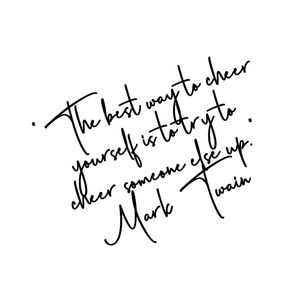 • The best way to cheer
yourself is to try to •
cheer someone else up.
Mark Twain